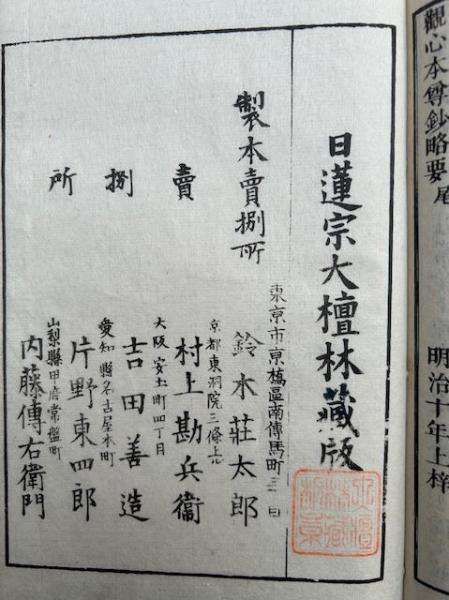 觀心本尊鈔略要 尾
明治十年上梓
日蓮宗大檀林藏版
製本賣捌所
東京市京橋區南傳馬町
鈴木莊太郎
賣捌所
京都東洞院三條上ル
村上勘兵衞
大阪安土町四丁目
吉田善造
愛知縣名古屋本町
片野東四郎
山梨縣甲府常盤町
内藤傳右衛門